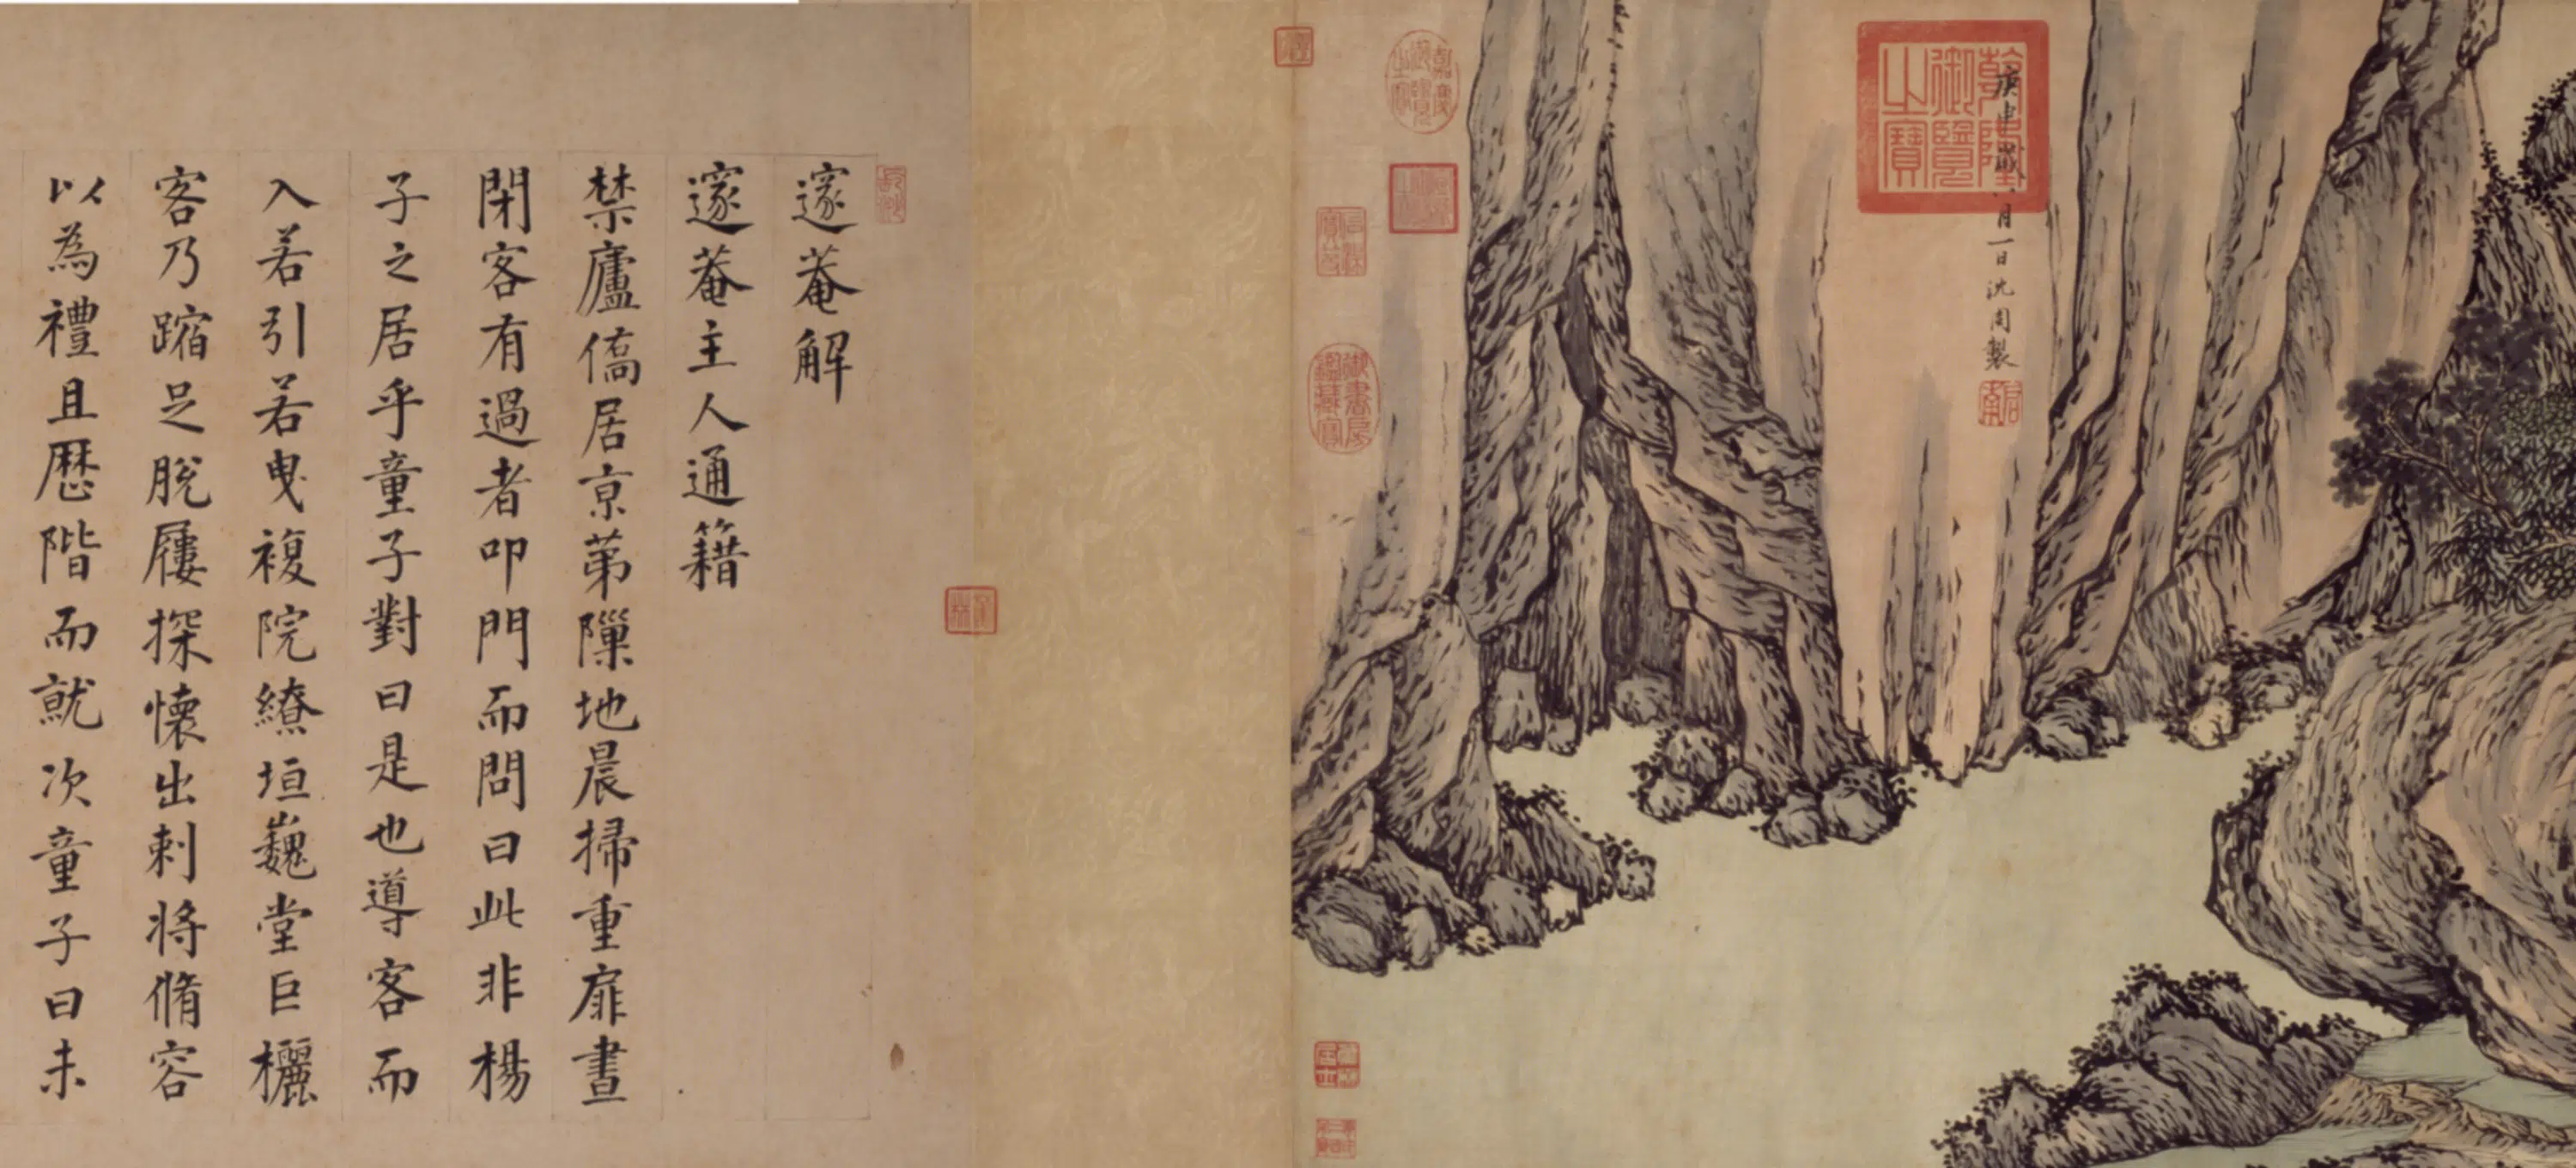 乾隆御覽之寶
庚申歲月一日沈周製
嘉慶御覽之寶
石渠寶笈
御書房鑑藏寶
邃菴解
邃菴主人通籍
禁廬僑居京第隟地晨掃重扉晝
閉客有過者叩門而問曰此非楊
子之居乎童子對曰是也導客而
入若引若曳複院繚垣巍堂巨欐
客乃蹜足脫屨探懷出刺將脩容
以為禮且歷階而就次童子曰未